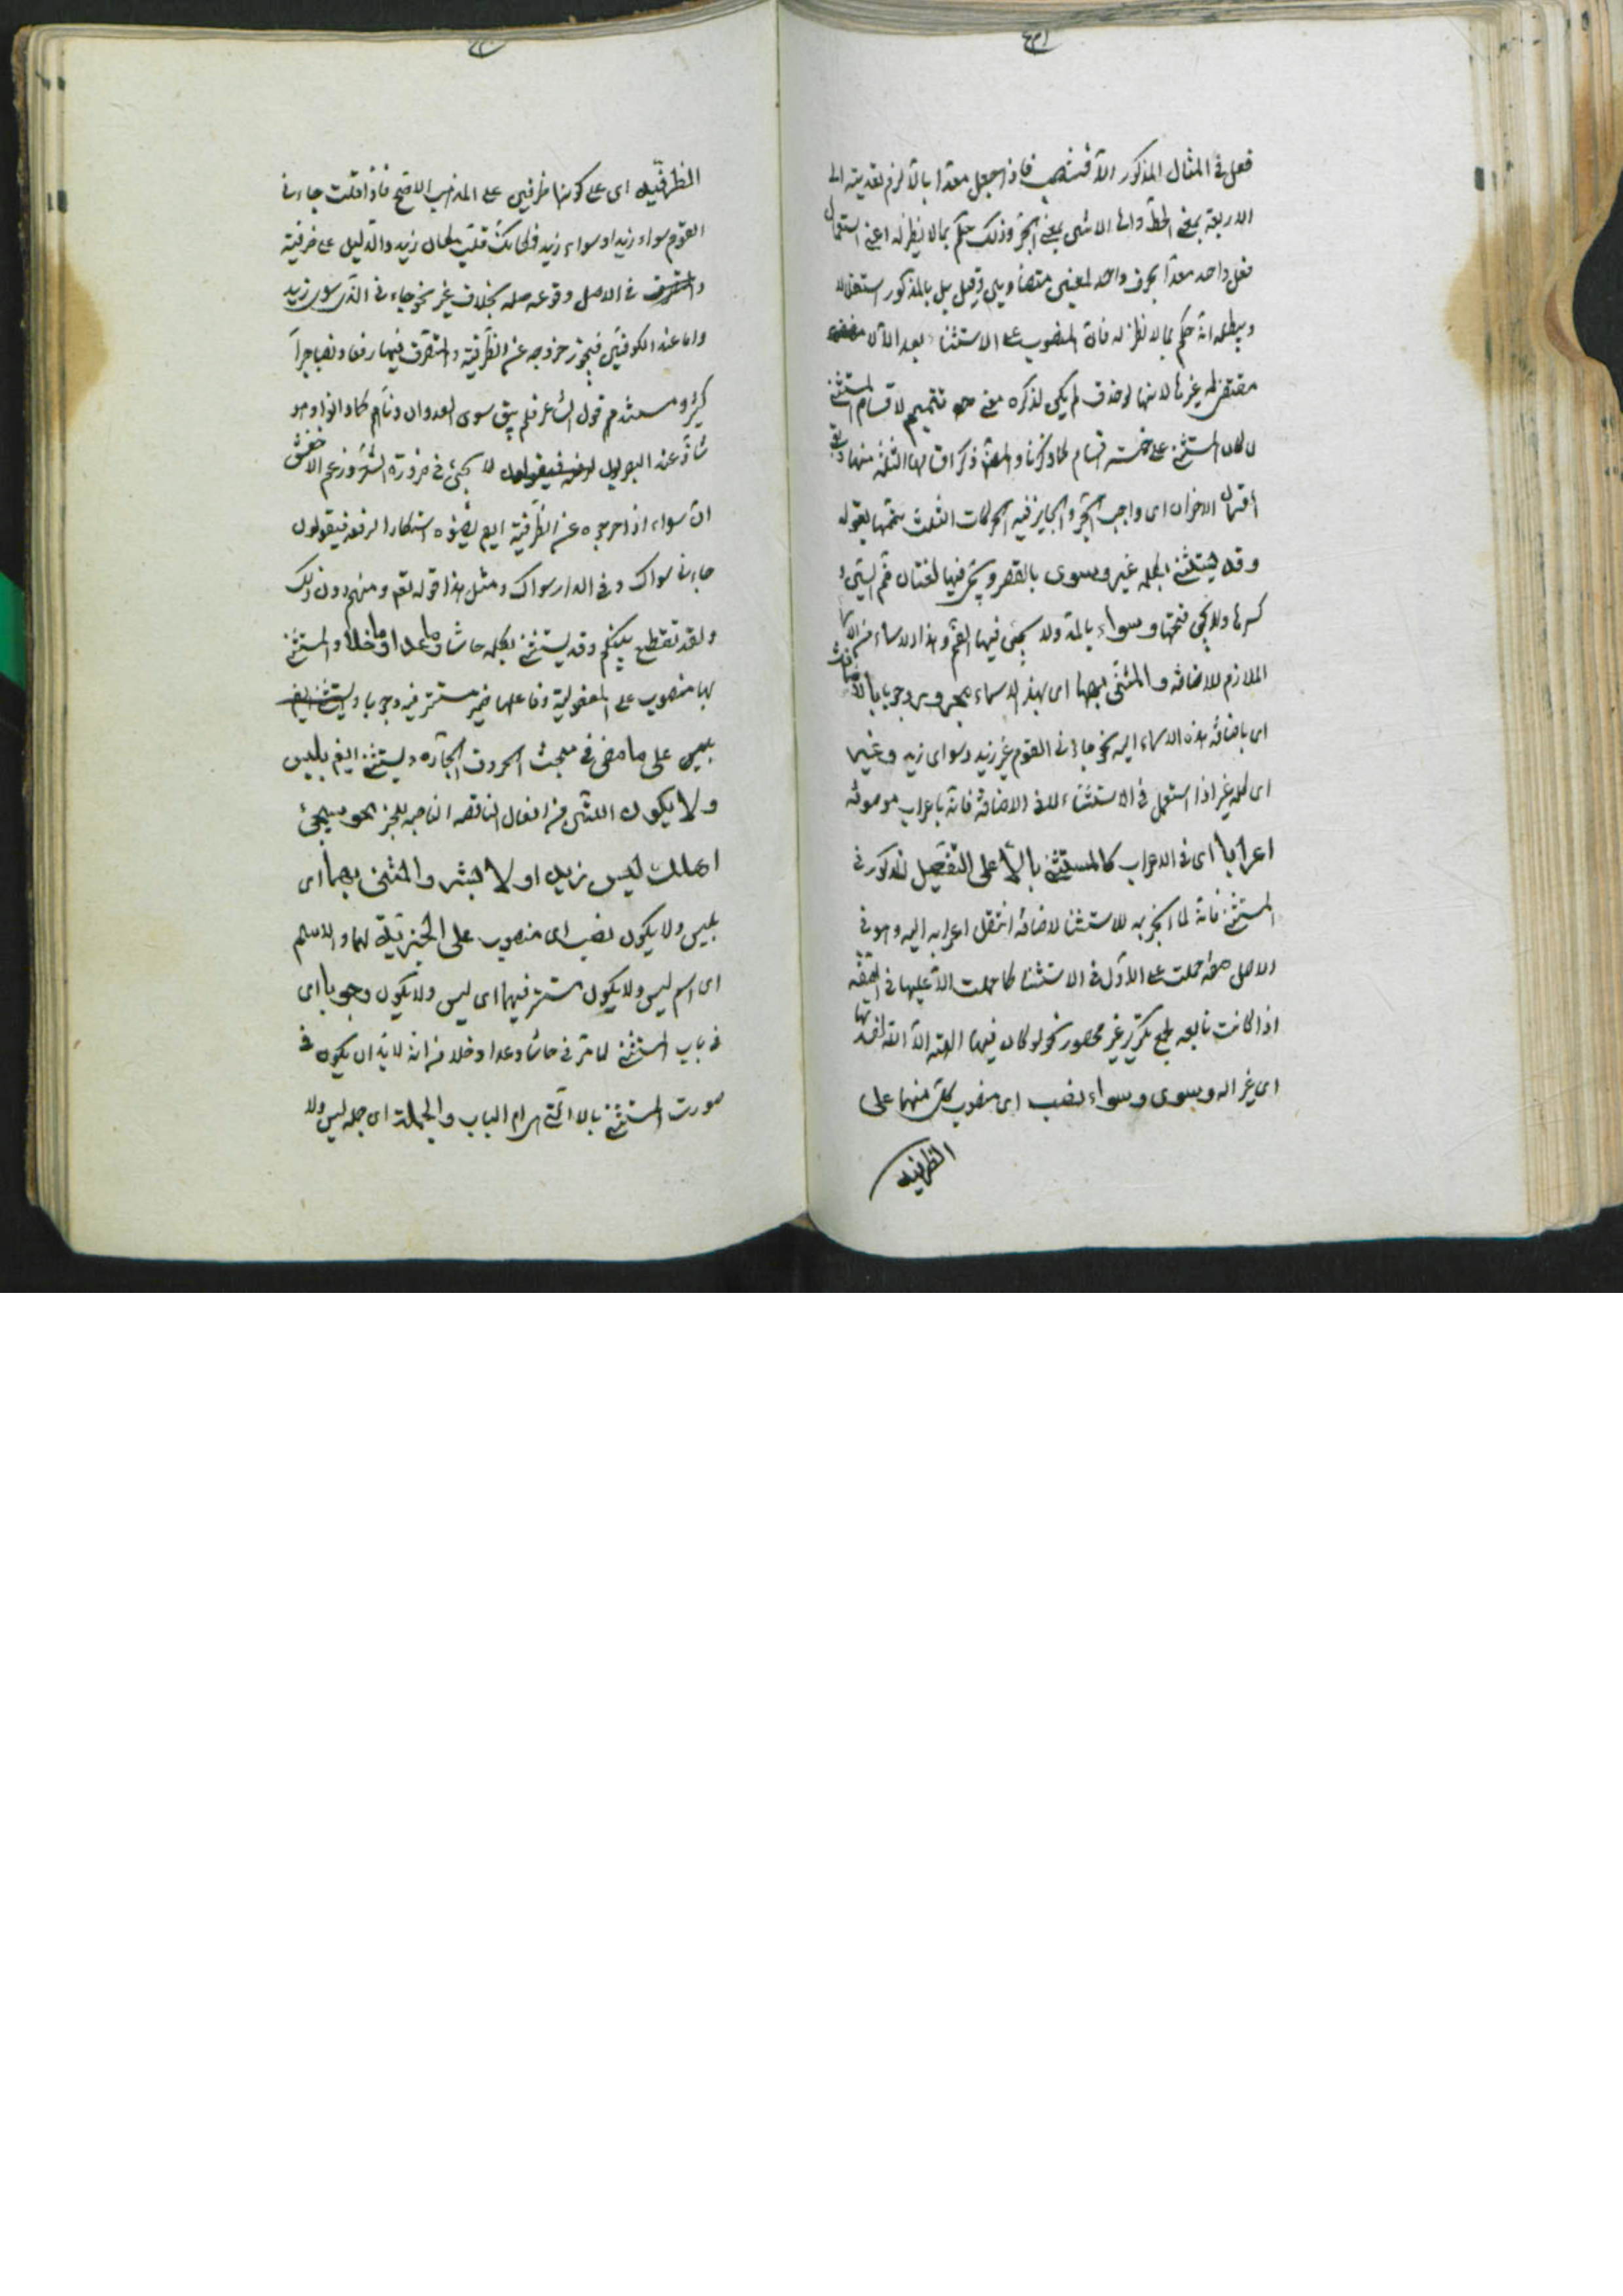 فعل فى المثال المذكور الا فينتصب فاذا جعل معدا بالا لزم تعديته الى
الاربعة بمعنى الحط والى الاثنى بمعنى الجبر وذلك حكم بما لا نظير له اعنى استعمال
فعل واحد معدا بحرف واحد لمعنيين متضادين وقيل بل بالمذكور استقلالا
ويبطله انه حكم بما لا نظير له فان المنصوب على الاستثناء بعد الا لا
مقتضى له غيرها لانها لو حذف لم يكن لذكره معنى تتميم لاقسام المستثنى
لان المستثنى على خمسة اقسام كما ذكرنا والمصنف ذكر اقسامها الثلثة منها وبقى
قسمان الاخران اى واجب الجر والجايز فيه الحركات الثلث يتمها بقوله
وقد يستثنى بكلمة غير وسوى بالقصر ويجئ فيها لغتان ضم السين و
كسرها ولا يجئ فتحها وسواء بالمد ولا يجئ فيها الضم وهذا الاسماء من الاسماء
الملازم للاضافة والمثنى بها اى بهذه الاسماء مجرور وجوبا بالاضافة
اى باضافة هذه الاسماء اليه نحو جاءنى القوم غير زيد وسوى زيد وغير
اى كلمة غير اذا استعمل فى الاستثناء للاضافة فانه باعراب موصوفه
اعرابا اى فى الاعراب كالمستثنى بالا على التفصيل المذكور فى
المستثنى فانه لما انجر به للاستثناء لاضافة انتقل اعرابه اليه وهو فى
الاصل صفة حملت على الا فى الاستثناء كما حملت الا عليها فى الصفة
اذا كانت تابعة لجمع منكر غير محصور نحو لو كان فيهما الهة الا الله لفسدتا
اى غير الله وسوى وسواء نصب اى منصوب كل منهما على
الظرفية
الظرفية اى على كونها ظرفين على المذهب الاصح فاذا قلت جاءنى
القوم سواء زيد او سواء زيد فكانك قلت مكان زيد والدليل على ظرفية
فى الاصل وقوعه صلة بخلاف غير نحو جاءنى الذى سوى زيد
واما عند الكوفيين فيجوز خروجه عن الظرفية والتصرف فيها رفعا ونصبا وجرا
كغير ومستندهم قول الشاعر فلم يبق سوى العدوان دناهم كما دانوا وهو
شاذ عند البصريين لا يجئ فى ضرورة الشعر وزعم الاخفش
ان سواء اذا اخرجوه عن الظرفية ايضا نصبوه استنكارا لرفعه فيقولون
جاءنى سواك وفى الدار سواك ومثل هذا قوله تعالى ومنهم دون ذلك
ولقد تقطع بينكم وقد يستثنى بكلمة حاشا وما عدا وما خلا والمستثنى
بها منصوب على المفعولية وفاعلها ضمير مستتر فيه وجوبا
على ما مضى فى مبحث الحروف الجارة ويستثنى ايضا بليس
ولا يكون اللتى من افعال الناقصة الناصبة للخبر نحو سيجئ
اهلك ليس زيد او لا بشر والمثنى بهما اى
بليس ولا يكون نصب اى منصوب على الخبرية لهما والاسم
اى اسم ليس ولا يكون مستتر فيهما اى ليس ولا يكون وجوبا اى
فى باب المستثنى لما مر فى حاشا وعدا وخلا من انه لابد ان يكون فى
صورت المستثنى بالا التى هى ام الباب والجملة اى جملة ليس ولا